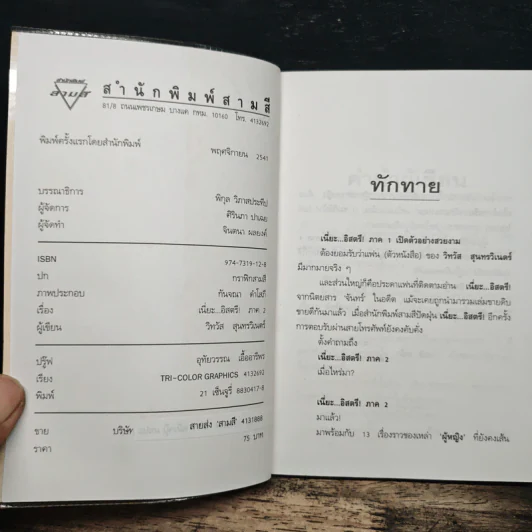 สำนักพิมพ์
สามสี
สำนักพิมพ์สามสี
81/8 ถนนเพชรเกษม บางแค กทม. 10160 โทร. 4132692
พิมพ์ครั้งแรกโดยสำนักพิมพ์ พฤศจิกายน 2541
บรรณาธิการ พิกุล วิภาสประทีป
ผู้จัดการ ศิรินภา
ผู้จัดทำ จินตนา ผลยงค์
ISBN 974-7319-12-8
ปก กราฟิกสามสี
ภาพประกอบ กันจณา คำโสภี
เรื่อง เนี่ยะ...อิสตรี! ภาค 2
ผู้เขียน วิทวัส สุนทรวิเนตร์
ปรู๊ฟ อุทัยวรรณ เอื้ออารีพร
เรียง TRI-COLOR GRAPHICS 4132692
พิมพ์ 21 เซ็นจูรี่ 8830417-8
ขาย บริษัท สายส่ง 'สามสี' 4131888
ราคา 75 บาท
ทักทาย
เนี่ยะ...อิสตรี! ภาค 1 เปิดตัวอย่างสวยงาม
ต้องยอมรับว่าแฟน (ตัวหนังสือ) ของ วิทวัส สุนทรวิเนตร์
มีมากมายจริง ๆ
และส่วนใหญ่ก็คือประดาแฟนที่ติดตามอ่าน เนี่ยะ...อิสตรี!
จากนิตยสาร 'จันทร์' ในอดีต แม้จะเคยถูกนำมารวมเล่มขายดิบ
ขายดีกันมาแล้ว เมื่อสำนักพิมพ์สามสีปัดฝุ่น เนี่ยะ...อิสตรี! อีกครั้ง
การตอบรับผ่านสายโทรศัพท์ยังคงคับคั่ง
ตั้งคำถามถึง
เนี่ยะ...อิสตรี! ภาค 2
เมื่อไหร่มา?
เนี่ยะ...อิสตรี! ภาค 2
มาแล้ว!
มาพร้อมกับ 13 เรื่องราวของเหล่า 'ผู้หญิง' ที่ยังคงเส้น